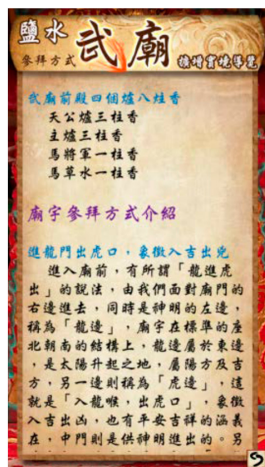 鹽水
武廟
參拜方式
擴增實境導覽
武廟前殿四個爐八柱香
天公爐三柱香
主爐三柱香
馬將軍一柱香
馬草水一柱香
廟宇參拜方式介紹
進龍門出虎口，象徵入吉出兇
進入廟前，有所謂「龍進虎
出」的說法，由我們面對廟門的
右邊進去，同時是神明的左邊，
稱為「龍邊」，廟宇在標準的座
北朝南的結構上，龍邊屬於東邊
，是太陽升起之地，屬陽方及吉
方，另一邊則稱為「虎邊」，這
就是「入龍喉，出虎口」，象徵
入吉出凶，也有平安吉祥的涵義
在，中門則是供神明進出的。另